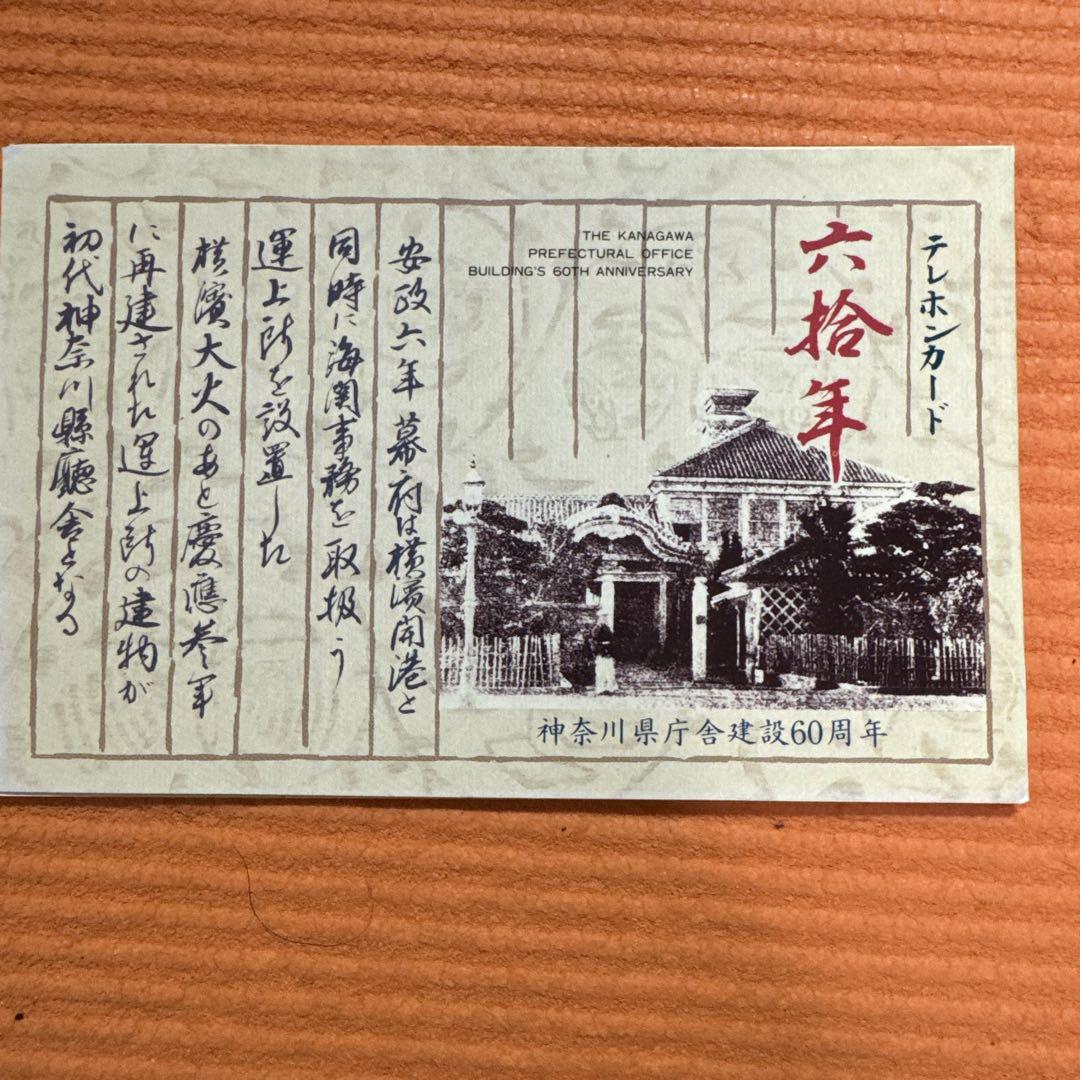 テレホンカード
六拾年
THE KANAGAWA
PREFECTURAL OFFICE
BUILDING'S 60TH ANNIVERSARY
神奈川県庁舎建設60周年
安政六年 幕府は横濱開港と
同時に海関事務を取扱う
運上所を設置した
横濱大火のあと慶應参年
に再建された運上所の建物が
初代神奈川縣廳舎となる